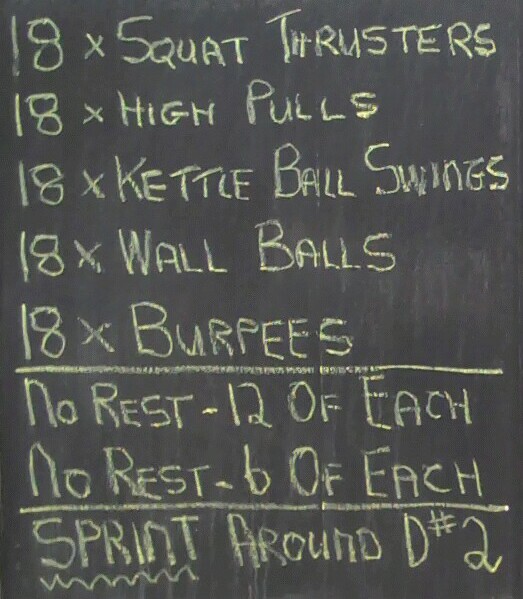 18 x SQUAT THRUSTERS
18 x HIGH PULLS
18 x KETTLE BALL SWINGS
18 x WALL BALLS
18 x BURPEES
NO REST - 12 OF EACH
NO REST - 6 OF EACH
SPRINT AROUND D#2